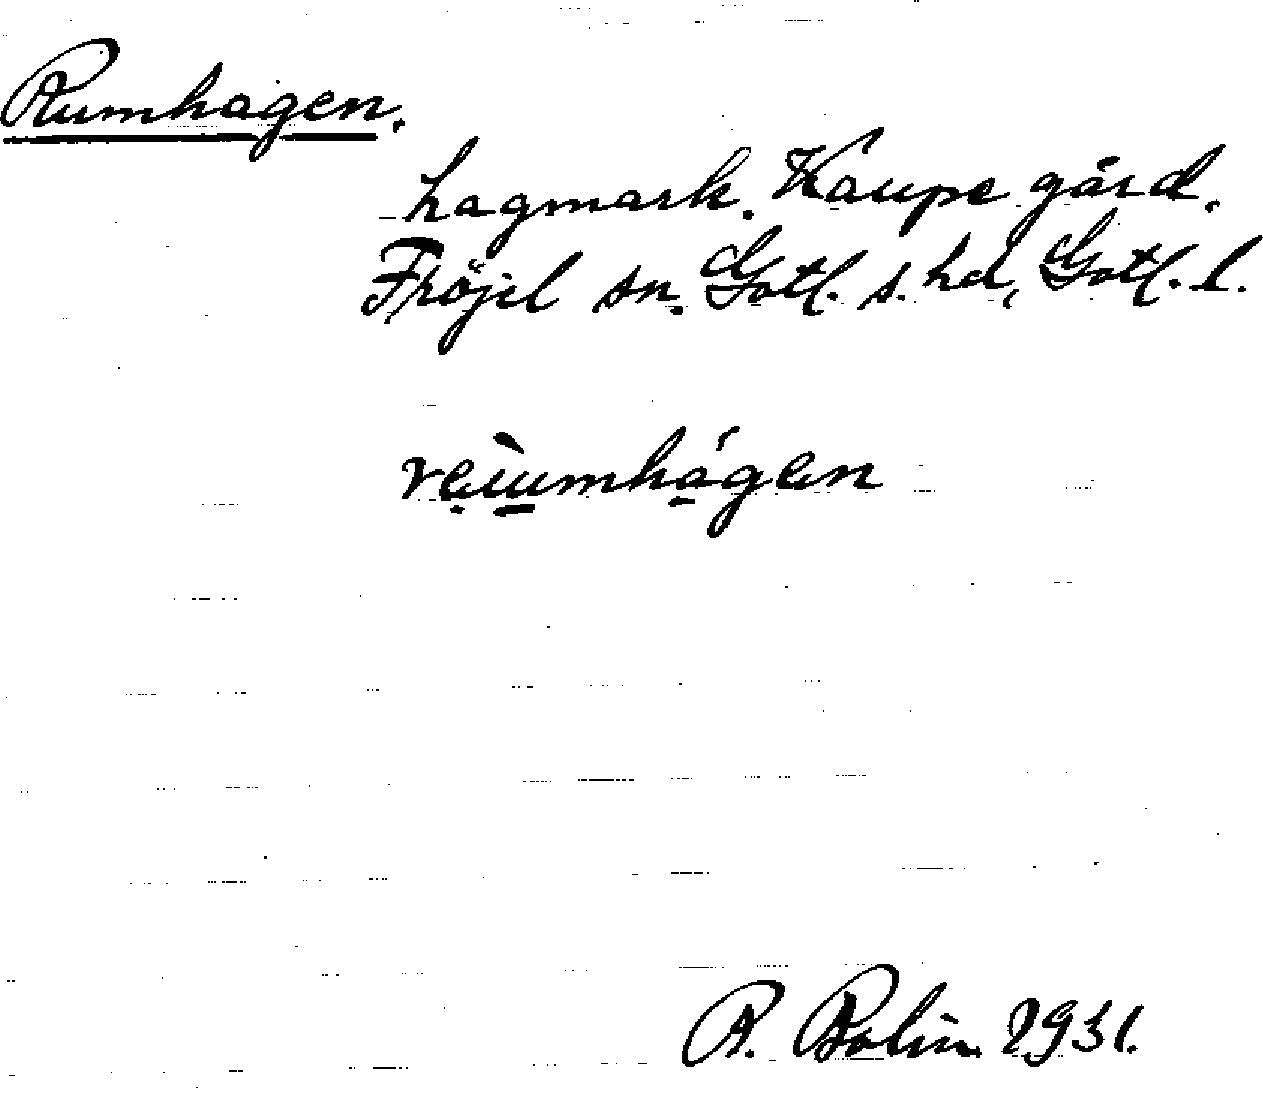 Rumhagen.
hagmark. Kaupe gård.
Fröjel sn. Gotl. s. hd, Gotl. l.
reuumhágen
R. Bolin 1931.